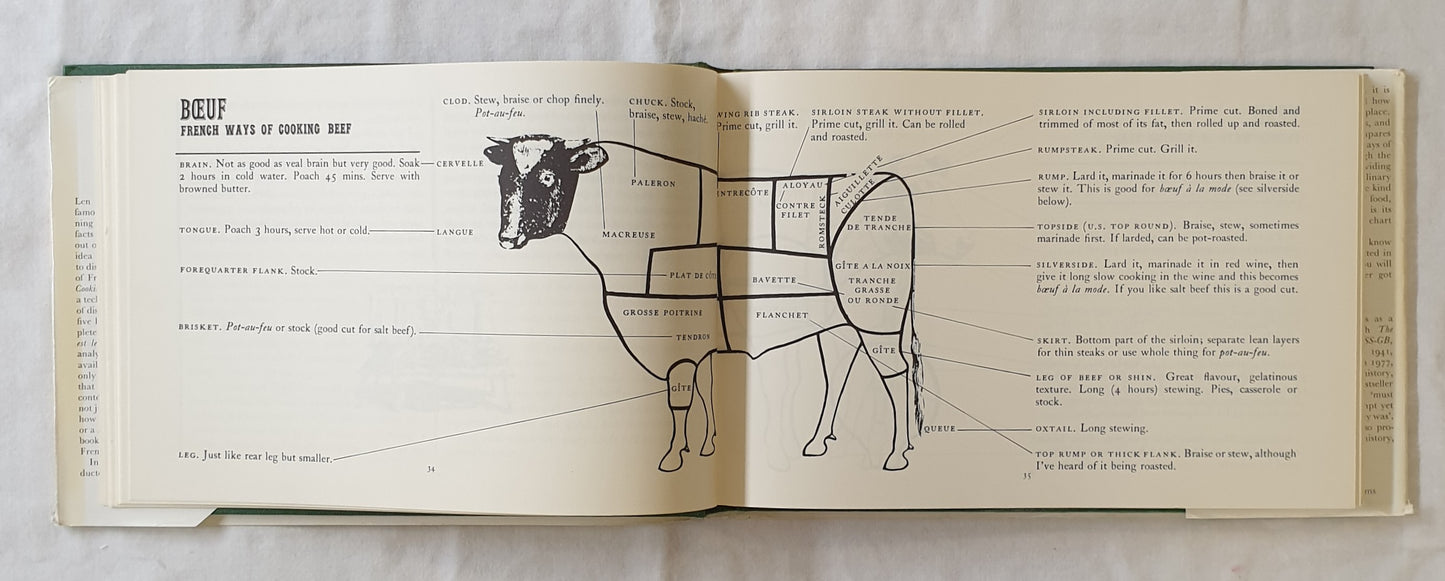 BŒUF
FRENCH WAYS OF COOKING BEEF
BRAIN. Not as good as veal brain but very good. Soak
2 hours in cold water. Poach 45 mins. Serve with
browned butter.
CERVELLE
TONGUE. Poach 3 hours, serve hot or cold.
LANGUE
FOREQUARTER FLANK. Stock.
BRISKET. Pot-au-feu or stock (good cut for salt beef).
LEG. Just like rear leg but smaller.
34
CLOD. Stew, braise or chop finely.
Pot-au-feu.
CHUCK. Stock,
braise, stew, haché.
PALERON
MACREUSE
PLAT DE
GROSSE POITRINE
TENDRON
GÎTE
RIB STEAK.
Prime cut, grill it.
SIRLOIN STEAK WITHOUT FILLET.
Prime cut, grill it. Can be rolled
and roasted.
ENTRECÔTE
ALOYAU
CONTRE
FILET
ROMSTECK
AIGUILLETTE
CULOTTE
TENDE
DE TRANCHE
GÎTE A LA NOIX
TRANCHE
GRASSE
OU RONDE
BAVETTE
FLANCHET
GÎTE
QUEUE
SIRLOIN INCLUDING FILLET. Prime cut. Boned and
trimmed of most of its fat, then rolled up and roasted.
RUMPSTEAK. Prime cut. Grill it.
RUMP. Lard it, marinade it for 6 hours then braise it or
stew it. This is good for bœuf à la mode (see silverside
below).
TOPSIDE (U.S. TOP ROUND). Braise, stew, sometimes
marinade first. If larded, can be pot-roasted.
SILVERSIDE. Lard it, marinade it in red wine, then
give it long slow cooking in the wine and this becomes
bœuf à la mode. If you like salt beef this is a good cut.
SKIRT. Bottom part of the sirloin; separate lean layers
for thin steaks or use whole thing for pot-au-feu.
LEG OF BEEF OR SHIN. Great flavour, gelatinous
texture. Long (4 hours) stewing. Pies, casserole or
stock.
OXTAIL. Long stewing.
TOP RUMP OR THICK FLANK. Braise or stew, although
I've heard of it being roasted.
35